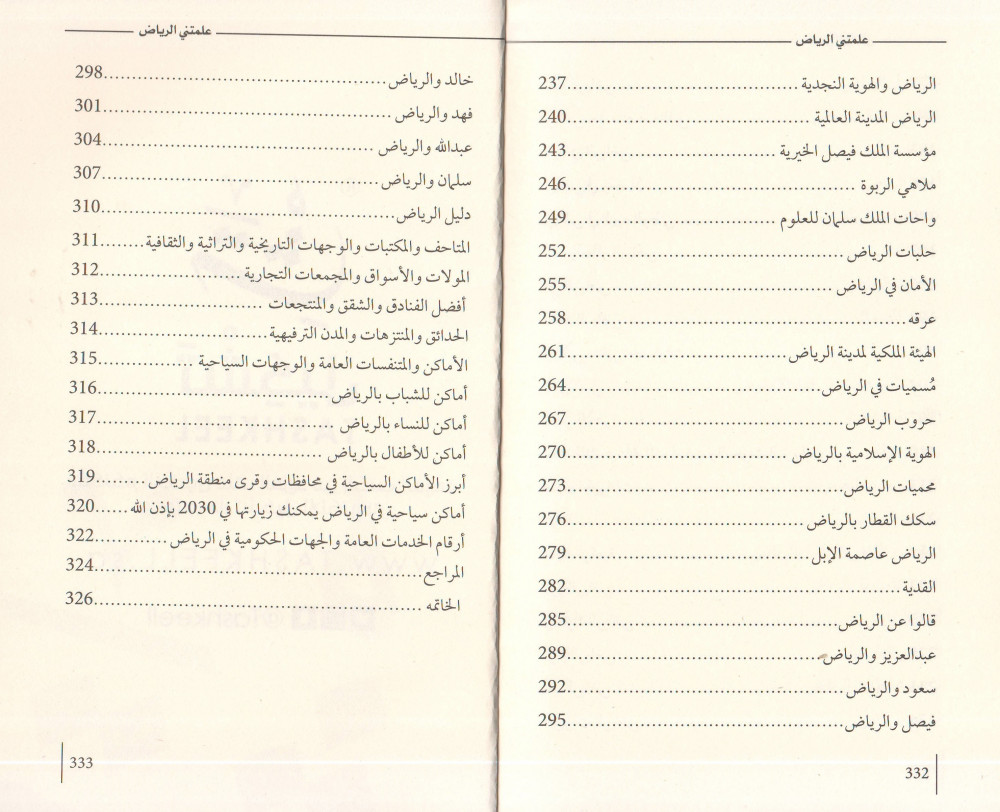 علمتني الرياض
الرياض والهوية النجدية........................................237
الرياض المدينة العالمية........................................240
مؤسسة الملك فيصل الخيرية........................................243
ملاهي الربوة........................................246
واحات الملك سلمان للعلوم........................................249
حلبات الرياض........................................252
الأمان في الرياض........................................255
عرقه........................................258
الهيئة الملكية لمدينة الرياض........................................261
مُسميات في الرياض........................................264
حروب الرياض........................................267
الهوية الإسلامية بالرياض........................................270
محميات الرياض........................................273
سكك القطار بالرياض........................................276
الرياض عاصمة الإبل........................................279
القدية........................................282
قالوا عن الرياض........................................285
عبدالعزيز والرياض........................................289
سعود والرياض........................................292
فيصل والرياض........................................295
332
علمتني الرياض
خالد والرياض........................................298
فهد والرياض........................................301
عبدالله والرياض........................................304
سلمان والرياض........................................307
دليل الرياض........................................310
المتاحف والمكتبات والوجهات التاريخية والتراثية والثقافية........311
المولات والأسواق والمجمعات التجارية........................312
أفضل الفنادق والشقق والمنتجعات........................313
الحدائق والمنتزهات والمدن الترفيهية........................314
الأماكن والمتنفسات العامة والوجهات السياحية................315
أماكن للشباب بالرياض........................................316
أماكن للنساء بالرياض........................................317
أماكن للأطفال بالرياض........................................318
أبرز الأماكن السياحية في محافظات وقرى منطقة الرياض.........319
أماكن سياحية في الرياض يمكنك زيارتها في 2030 بإذن الله......320
أرقام الخدمات العامة والجهات الحكومية في الرياض............322
المراجع........................................324
الخاتمه........................................326
333